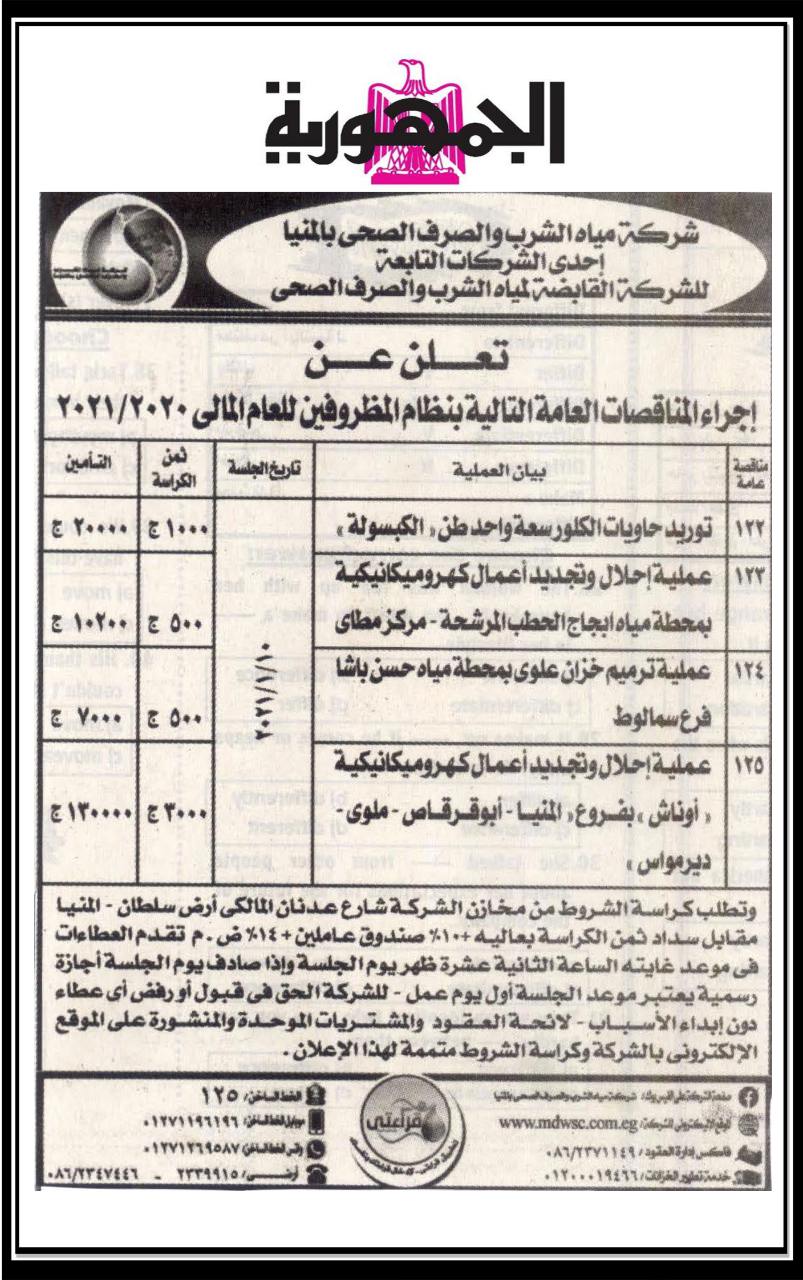 الجمهورية
شركة مياه الشرب والصرف الصحى بالمنيا
إحدى الشركات التابعة
للشركة القابضة لمياه الشرب والصرف الصحى
تعلن عن
إجراء المناقصات العامة التالية بنظام المظروفين للعام المالى ٢٠٢١/٢٠٢٠
مناقصة عامة	بيان العملية	تاريخ الجلسة	ثمن الكراسة	التأمين
١٢٢	توريد حاويات الكلور سعة واحد طن « الكبسولة »	١٠٠٠ ج	٢٠٠٠٠ ج
١٢٣	عملية إحلال وتجديد أعمال كهروميكانيكية
بمحطة مياه ابجاج الحطب المرشحة - مركز مطاى	٥٠٠ ج	١٠٢٠٠ ج
٢٠٢١/١/١٠
١٢٤	عملية ترميم خزان علوى بمحطة مياه حسن باشا
فرع سمالوط	٥٠٠ ج	٧٠٠٠ ج
١٢٥	عملية إحلال وتجديد أعمال كهروميكانيكية
« أوناش » بفروع « المنيا - أبوقرقاص - ملوى -	٣٠٠٠ ج	١٣٠٠٠٠ ج
ديرمواس »
وتطلب كراسة الشروط من مخازن الشركة شارع عدنان المالكى أرض سلطان - المنيا
مقابل سداد ثمن الكراسة بعاليه + ١٠٪ صندوق عاملين + ١٤٪ ض . م تقدم العطاءات
فى موعد غايته الساعة الثانية عشرة ظهر يوم الجلسة وإذا صادف يوم الجلسة أجازة
رسمية يعتبر موعد الجلسة أول يوم عمل - للشركة الحق فى قبول أو رفض أى عطاء
دون إبداء الأسباب - لائحة العقود والمشتريات الموحدة والمنشورة على الموقع
الإلكترونى بالشركة وكراسة الشروط متممة لهذا الإعلان .
صفحة الشركة على الفيس بوك: شركة مياه الشرب والصرف الصحى بالمنيا
الموقع الإليكترونى للشركة: www.mdwsc.com.eg
فاكس إدارة العقود / ٠٨٦/٢٣٧١١٤٩
خدمة تطهير الخزانات / ٠١٢٠٠٠١٩٤٦٦
قراءتى
الخط الساخن / ١٢٥
موبايل الخط الساخن / ٠١٢٧١١٩٦١٩٦
واتس الخط الساخن / ٠١٢٧١٢٦٩٥٨٧
أرضى / ٢٣٣٩٩١٥ - ٠٨٦/٢٣٤٧٤٤٦